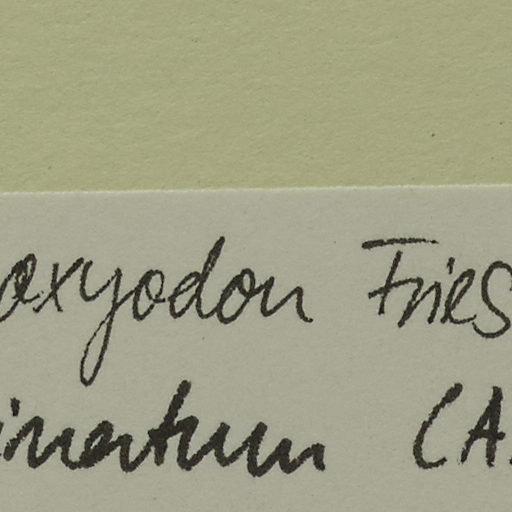 oxyodon Fries
inertum (A.